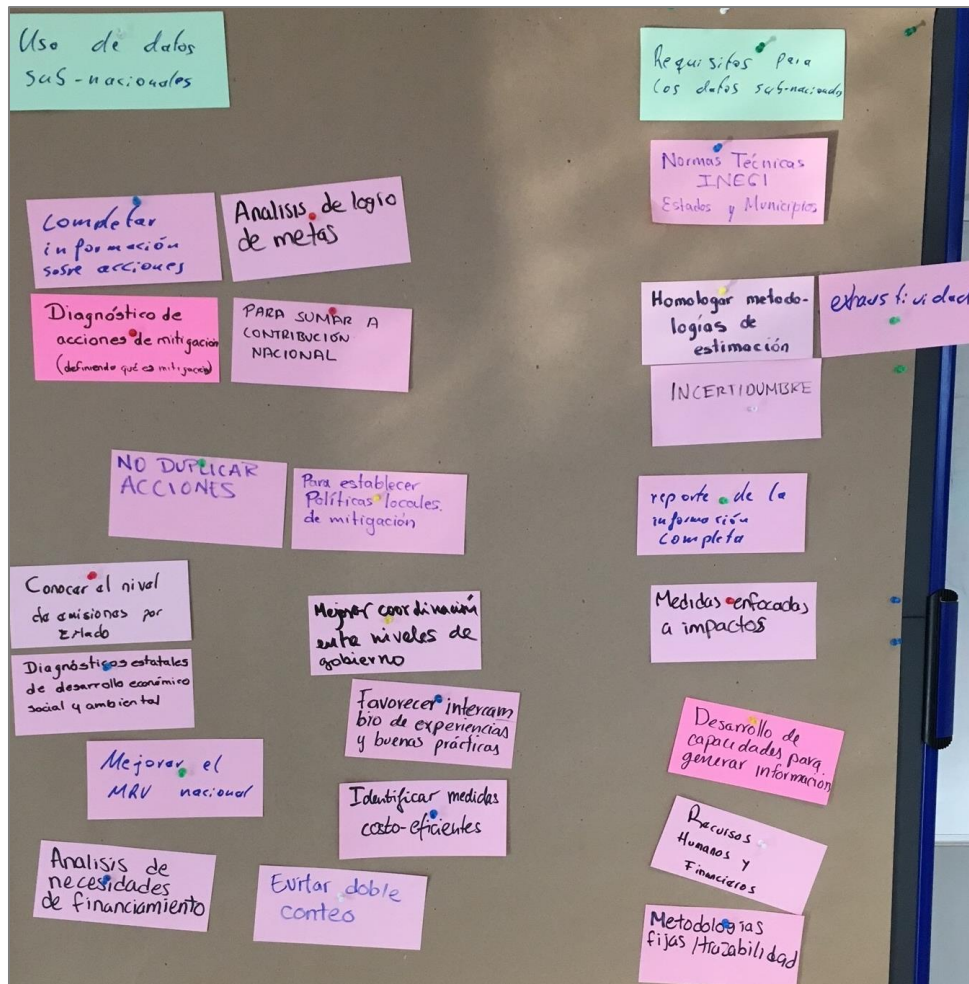 Uso de datos
sub-nacionales
Completar
información
sobre acciones
Analisis de logro
de metas
Diagnóstico de
acciones de mitigación
(definiendo qué es mitigación)
PARA SUMAR A
CONTRIBUCIÓN
NACIONAL
NO DUPLICAR
ACCIONES
Para establecer
Políticas locales
de mitigación
Conocer el nivel
de emisiones por
Estado
Diagnósticos estatales
de desarrollo económico
social y ambiental
Mejorar coordinación
entre niveles de
gobierno
Favorecer intercam
bio de experiencias
y buenas prácticas
Mejorar el
MRV nacional
Identificar medidas
costo-eficientes
Analisis de
necesidades
de financiamiento
Evitar doble
conteo
Requisitos para
los datos sub-nacionales
Normas Técnicas
INEGI
Estados y Municipios
Homologar metodo-
logías de
estimación
exhaustividad
INCERTIDUMBRE
reporte de la
información
completa
Medidas enfocadas
a impactos
Desarrollo de
capacidades para
generar información
Recursos
Humanos y
Financieros
Metodologías
fijas/trazabilidad